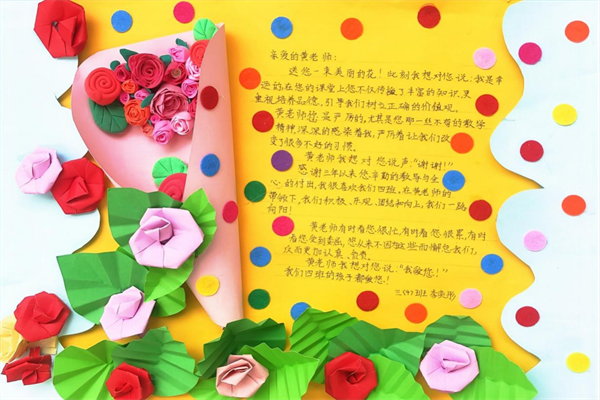 亲爱的黄老师:
送您一束美丽的花!此刻我想对您说:我是幸
运的,在您的课堂上您不仅传播了丰富的知识,更
重视培养品德,引导我们树立正确的价值观。
黄老师您是严厉的,尤其是您那一丝不苟的教学
精神,深深的感染着我,严厉着让我们改
变了很多不好的习惯。
黄老师我想对您说声:“谢谢!”
感谢三年以来您辛勤的教导与全
心的付出,我很喜欢我们四班,在黄老师的
带领下,我们积极、乐观、团结和向上,我们一路
向阳!
黄老师有时看您很忙,有时看您很累,有时
看您受到委屈,您从来不因为这些而懈怠我们,
反而更加认真、负责。
黄老师我想对您说:“我爱您!”
我们四班的孩子都爱您!
三(4)班